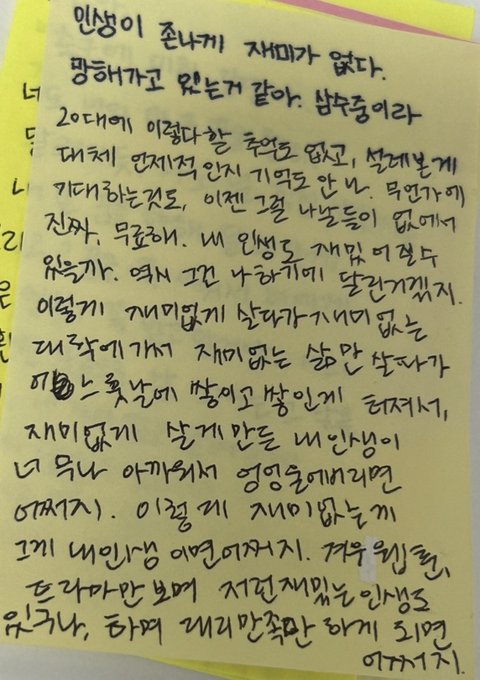 인생이 존나게 재미가 없다.
망해가고 있는거 같아. 삼수중이라
20대에 이렇다할 추억도 없고, 설레본게
대체 언제적 인지 기억도 안 나. 무언가에
기대하는것도, 이젠 그럴 나날들이 없에서
진짜, 무료해. 내 인생도 재밌어질수
있을까. 역시 그건 나 하기에 달린거겠지.
이렇게 재미없게 살다가 재미없는
대학에가서 재미없는 삶만 살다가
어느 훗날에 쌓이고 쌓인게 터져서,
재미없게 살게 만든 내 인생이
너무나 아까워서 엉엉울어버리면
어쩌지. 이렇게 재미없는게
그게 내인생 이면어쩌지. 겨우 웹툰,
드라마만 보며 저런재밌는 인생도
있구나, 하며 대리만족만 하게 되면
어쩌지.
너